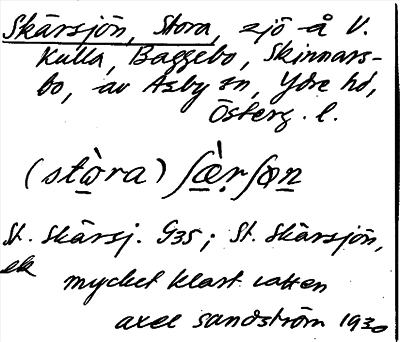 Skärsjön, Stora, sjö å V.
Kulla, Baggebo, Skinnars-
bo, av Asby sn, Ydre hd,
Österg. l.
(stò̠ra) ʃæ̠̀rʃo̠n
St. Skärsj. G35; St. Skärsjön,
ek
mycket klart vatten
axel sandström 1930